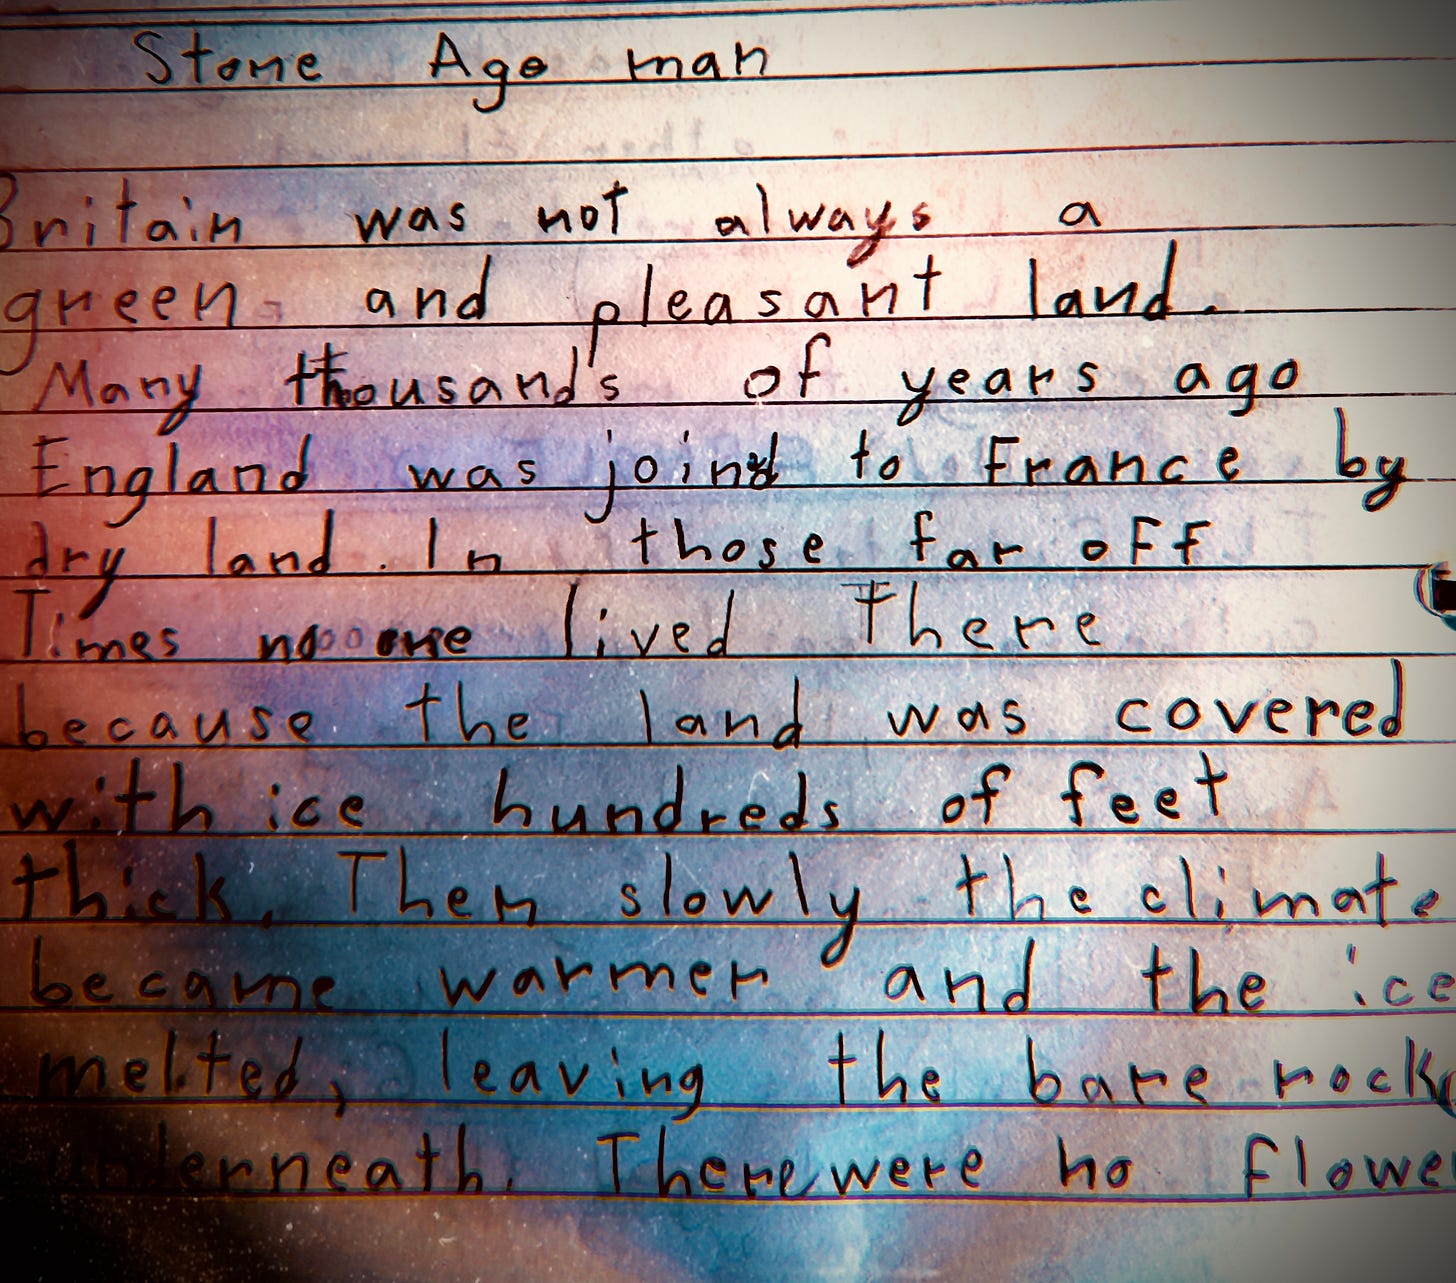 Stone Age man
Britain was not always a
green and pleasant land.
Many thousand's of years ago
England was joind to France by
dry land. In those far off
Times no one lived There
because the land was covered
with ice hundreds of feet
thick. Then slowly the climate
became warmer and the ice
melted, leaving the bare rock
underneath. There were no flowe